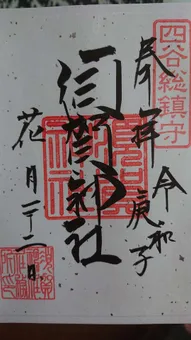 四谷総鎮守
奉拝
令和
庚子
須賀神社
花月二十二日